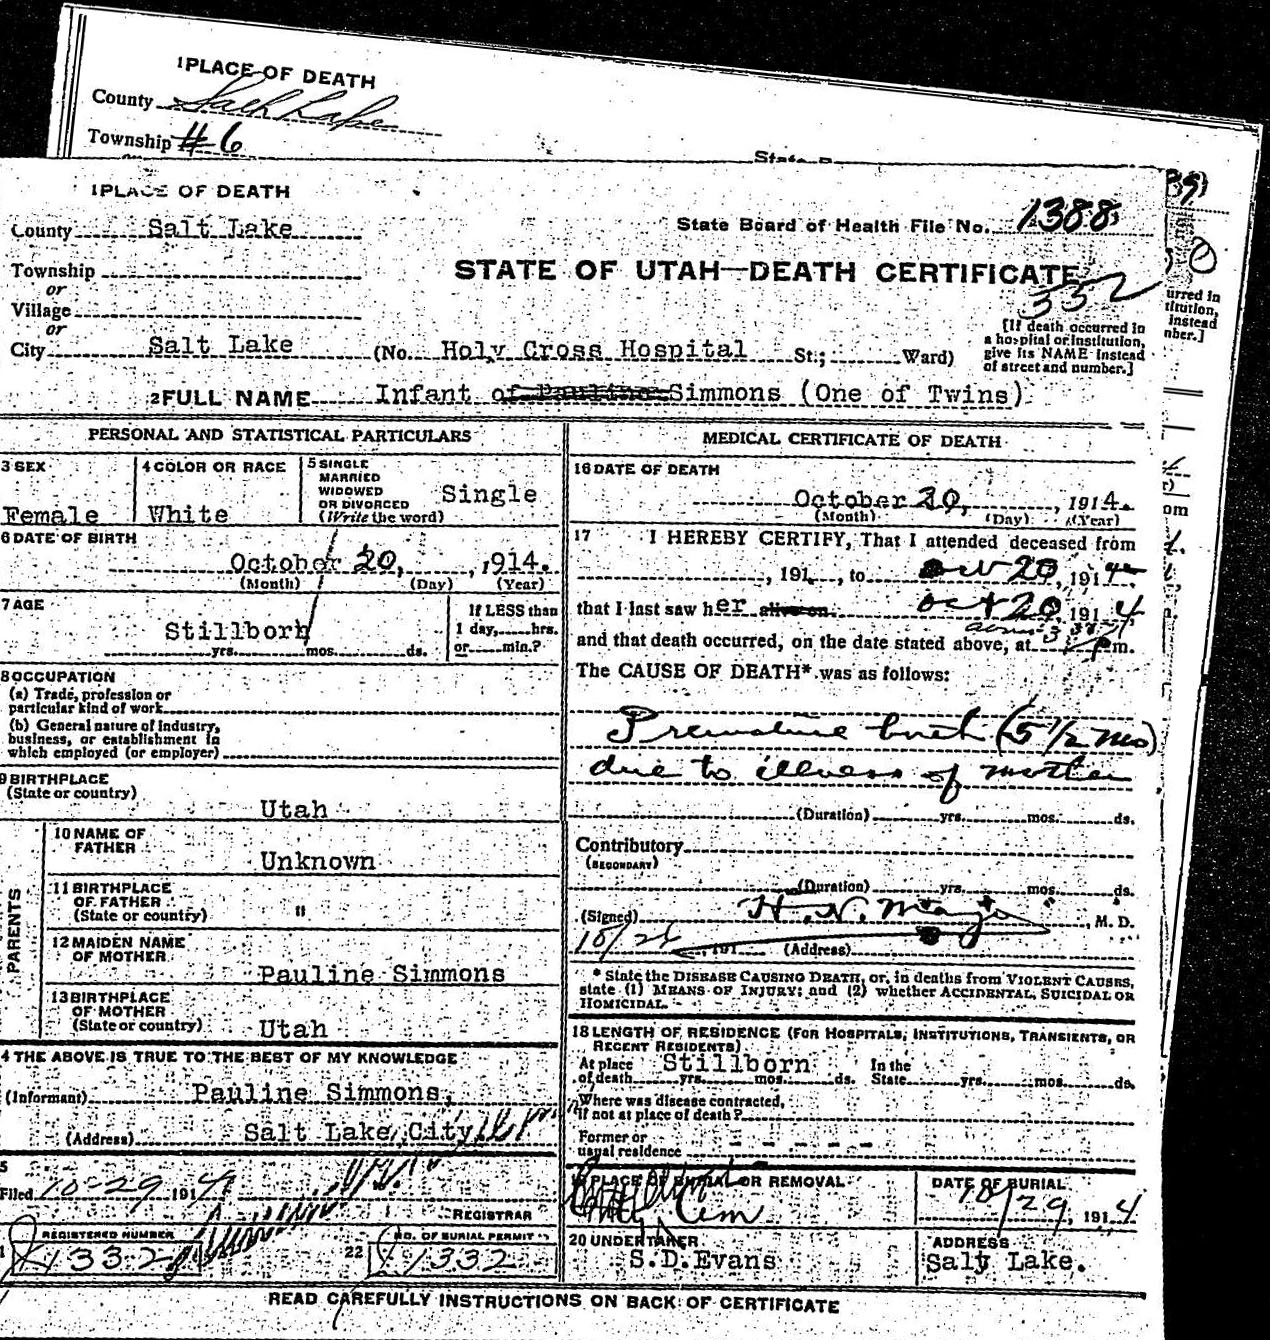 1 PLACE OF DEATH
County Salt Lake
Township #6
1 PLACE OF DEATH
County Salt Lake
State Board of Health File No. 1388
Township
STATE OF UTAH—DEATH CERTIFICATE
or
332
Village
or
City Salt Lake (No. Holy Cross Hospital St.; Ward)
[If death occurred in
a hospital or institution,
give its NAME instead
of street and number.]
2 FULL NAME Infant of Pauline Simmons (One of Twins)
PERSONAL AND STATISTICAL PARTICULARS
3 SEX
Female
4 COLOR OR RACE
White
5 SINGLE
MARRIED
WIDOWED
OR DIVORCED
(Write the word)
Single
6 DATE OF BIRTH
October 20, 1914.
(Month) (Day) (Year)
7 AGE
Stillborn
yrs. mos. ds.
If LESS than
1 day, hrs.
or min.?
8 OCCUPATION
(a) Trade, profession or
particular kind of work
(b) General nature of industry,
business, or establishment in
which employed (or employer)
9 BIRTHPLACE
(State or country)
Utah
PARENTS
10 NAME OF
FATHER
Unknown
11 BIRTHPLACE
OF FATHER
(State or country)
"
12 MAIDEN NAME
OF MOTHER
Pauline Simmons
13 BIRTHPLACE
OF MOTHER
(State or country)
Utah
4 THE ABOVE IS TRUE TO THE BEST OF MY KNOWLEDGE
(Informant) Pauline Simmons,
(Address) Salt Lake City
5
Filed 10-29 1914
REGISTRAR
REGISTERED NUMBER
1332
22
NO. OF BURIAL PERMIT
1332
MEDICAL CERTIFICATE OF DEATH
16 DATE OF DEATH
October 20, 1914.
(Month) (Day) (Year)
17 I HEREBY CERTIFY, That I attended deceased from
, 191 , to Oct 20, 1914
that I last saw her alive on Oct 20, 1914
and that death occurred, on the date stated above, at 3 Pm.
The CAUSE OF DEATH* was as follows:
Premature birth (5 1/2 mo)
due to illness of mother
(Duration) yrs. mos. ds.
Contributory
(SECONDARY)
(Duration) yrs. mos. ds.
(Signed) H. N. Mayo, M. D.
191 (Address)
* State the DISEASE CAUSING DEATH, or, in deaths from VIOLENT CAUSES,
state (1) MEANS OF INJURY; and (2) whether ACCIDENTAL, SUICIDAL OR
HOMICIDAL.
18 LENGTH OF RESIDENCE (FOR HOSPITALS, INSTITUTIONS, TRANSIENTS, OR
RECENT RESIDENTS)
At place Stillborn In the
of death yrs. mos. ds. State yrs. mos. ds.
Where was disease contracted,
if not at place of death?
Former or
usual residence
PLACE OF BURIAL OR REMOVAL
City Cem
DATE OF BURIAL
10/29, 1914
20 UNDERTAKER
S.D.Evans
ADDRESS
Salt Lake.
READ CAREFULLY INSTRUCTIONS ON BACK OF CERTIFICATE